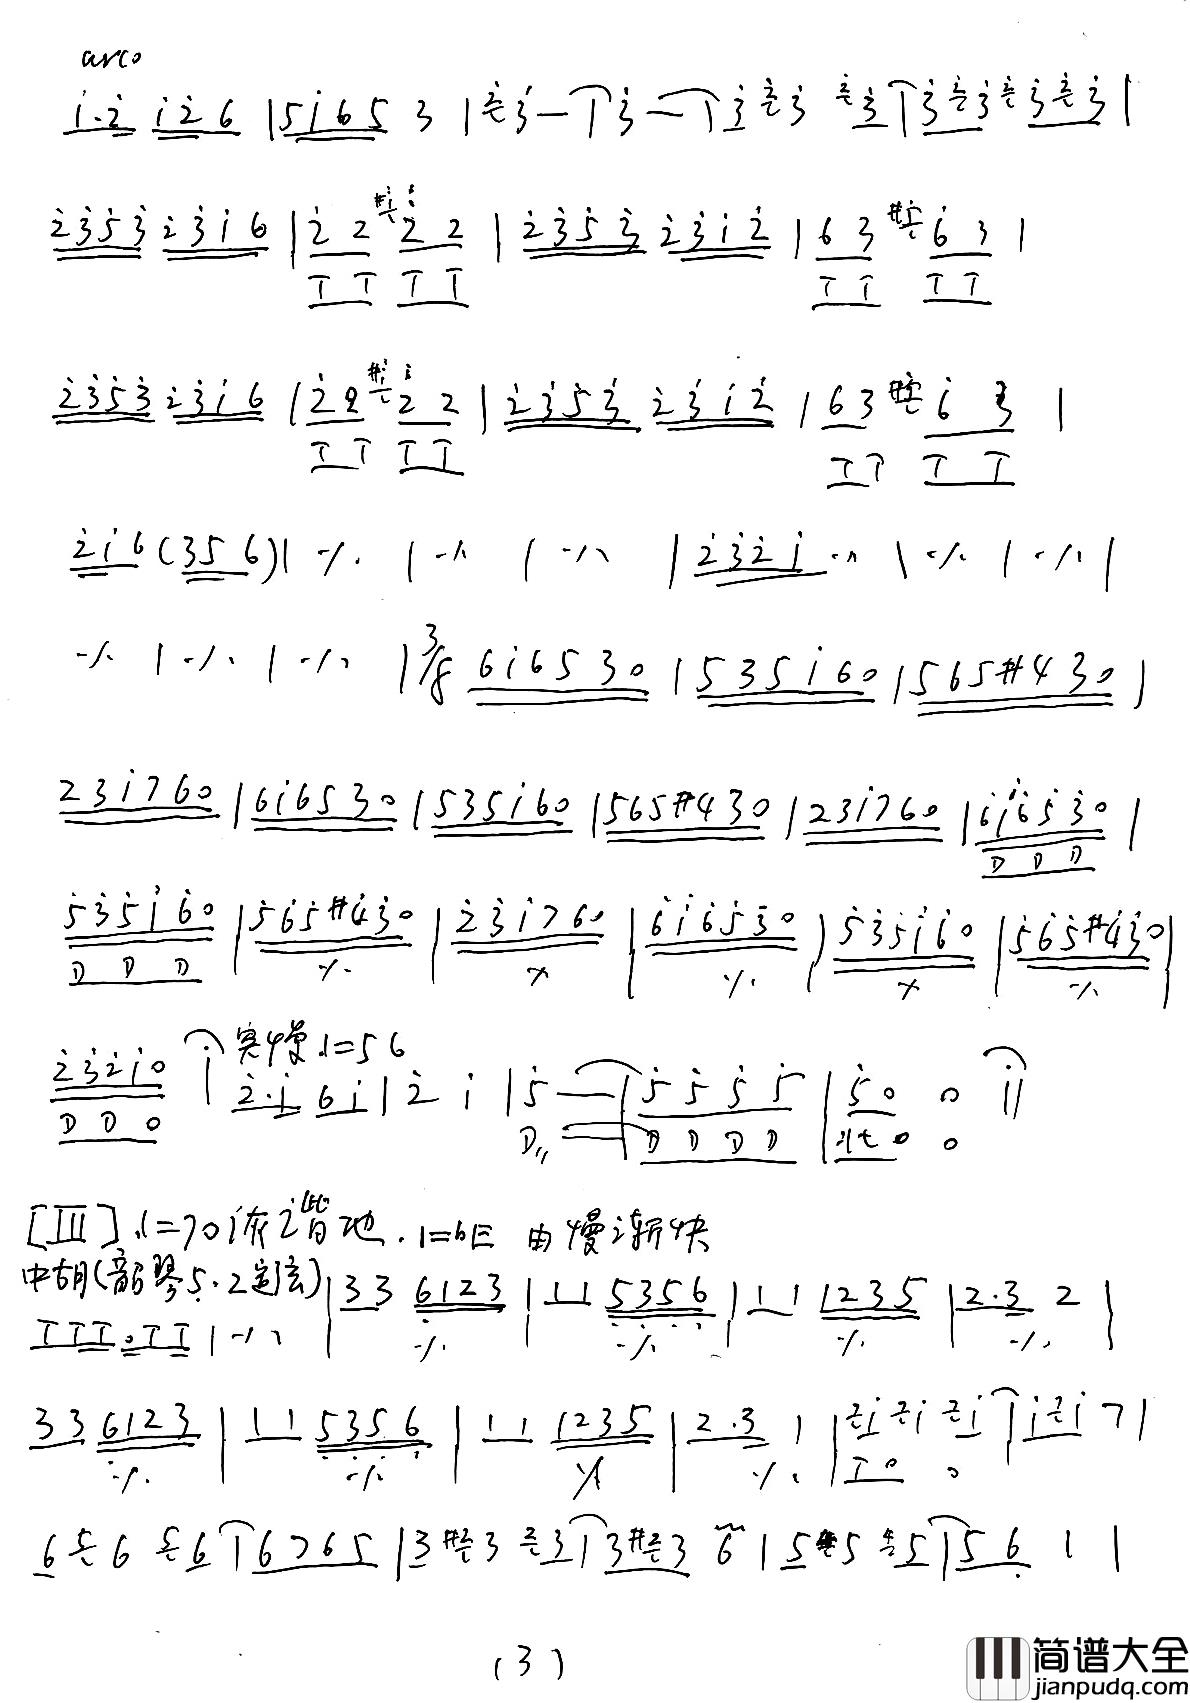 arco
i·2 i26 |5i65 3 | 2 3 — | 3 — | 3 2 3 2 3 | 3 2 3 2 3 2 3 |
2353 231 6 | 2 2 #1 2 2 | 2353 2312 | 63 #5 63 |
T T T T T T T T
2353 2316 | 22 #1 22 | 2353 2312 | 63 i 3 |
T T T T T T T T
2i6(356)| ·/· | ·/· | ·/· | 232i ·/· | ·/· | ·/· |
·/· | ·/· | ·/· | 3/8 6i6530 | 535i60 | 565#430 |
23i760 | 6i6530 | 535i60 | 565#430 | 23i760 | 6i6530 |
D D D
535i60 | 565#430 | 23i760 | 6i6530 | 535i60 | 565#430 |
D D D ·/· ·/· ·/· ·/· ·/·
232i0 | 突慢 ♩=56 2·i 6i | 2 i | 5 — | 5 5 5 5 | 50 0 ||
D D 0 D D D D D 0 0
[III] ♩=70 诙谐地. 1=bE 由慢渐快
中胡(5·2定弦) | 33 6123 | 11 5356 | 11 1235 | 2·3 2 |
TTT·TT | ·/· ·/· ·/· ·/· ·/·
33 6123 | 11 5356 | 11 1235 | 2·3 1 | 2i 2i 2i | i2i 7 |
·/· ·/· ·/· ·/· T 0 0
6 5 6 5 6 | 6765 | 3 #2 3 2 3 | 3 #2 3 6 | 5 #4 5 4 5 | 5 6 1 |
(3)
简谱大全
jianpudq.com